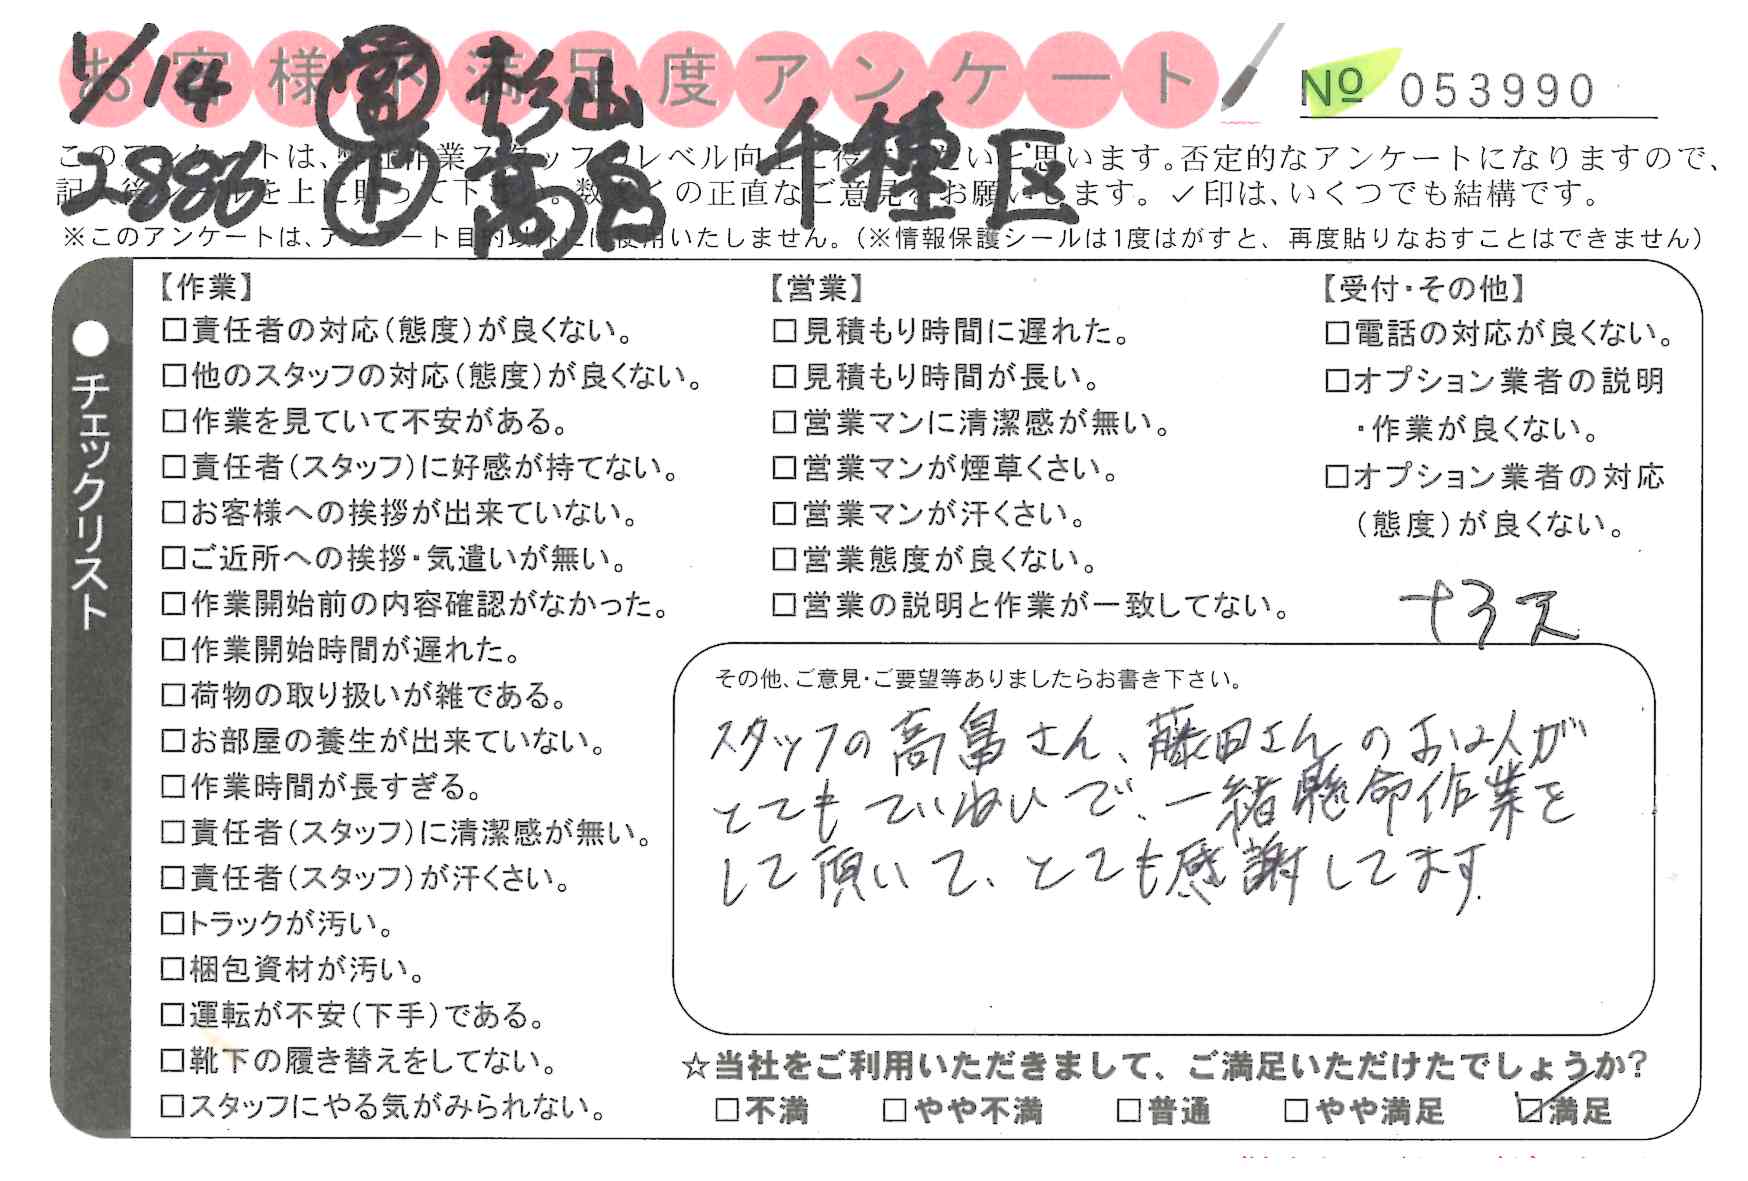 お客様不満足度アンケート
№ 053990
1/14 営 杉山
2886 ト 高畠 千種区
このアンケートは、弊社作業スタッフのレベル向上に役立てたいと思います。否定的なアンケートになりますので、
記入後シールを上に貼って下さい。数多くの正直なご意見をお願いします。✓印は、いくつでも結構です。
※このアンケートは、アンケート目的以外には使用いたしません。(※情報保護シールは1度はがすと、再度貼りなおすことはできません)
●チェックリスト
【作業】
□責任者の対応(態度)が良くない。
□他のスタッフの対応(態度)が良くない。
□作業を見ていて不安がある。
□責任者(スタッフ)に好感が持てない。
□お客様への挨拶が出来ていない。
□ご近所への挨拶・気遣いが無い。
□作業開始前の内容確認がなかった。
□作業開始時間が遅れた。
□荷物の取り扱いが雑である。
□お部屋の養生が出来ていない。
□作業時間が長すぎる。
□責任者(スタッフ)に清潔感が無い。
□責任者(スタッフ)が汗くさい。
□トラックが汚い。
□梱包資材が汚い。
□運転が不安(下手)である。
□靴下の履き替えをしてない。
□スタッフにやる気がみられない。
【営業】
□見積もり時間に遅れた。
□見積もり時間が長い。
□営業マンに清潔感が無い。
□営業マンが煙草くさい。
□営業マンが汗くさい。
□営業態度が良くない。
□営業の説明と作業が一致してない。
【受付・その他】
□電話の対応が良くない。
□オプション業者の説明
・作業が良くない。
□オプション業者の対応
(態度)が良くない。
その他、ご意見・ご要望等ありましたらお書き下さい。
スタッフの高畠さん、藤田さんのお2人が
とてもていねいで、一緒懸命作業を
して頂いて、とても感謝してます.
☆当社をご利用いただきまして、ご満足いただけたでしょうか?
□不満 □やや不満 □普通 □やや満足 ☑満足